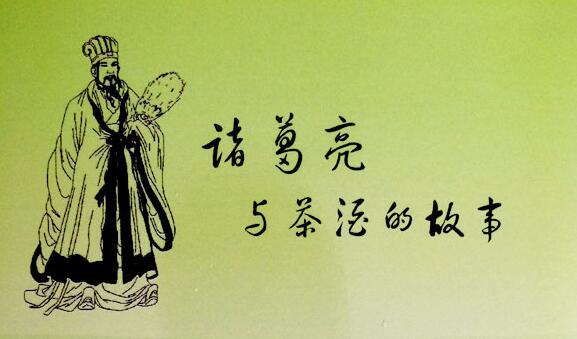 诸葛亮
与茶酒的故事